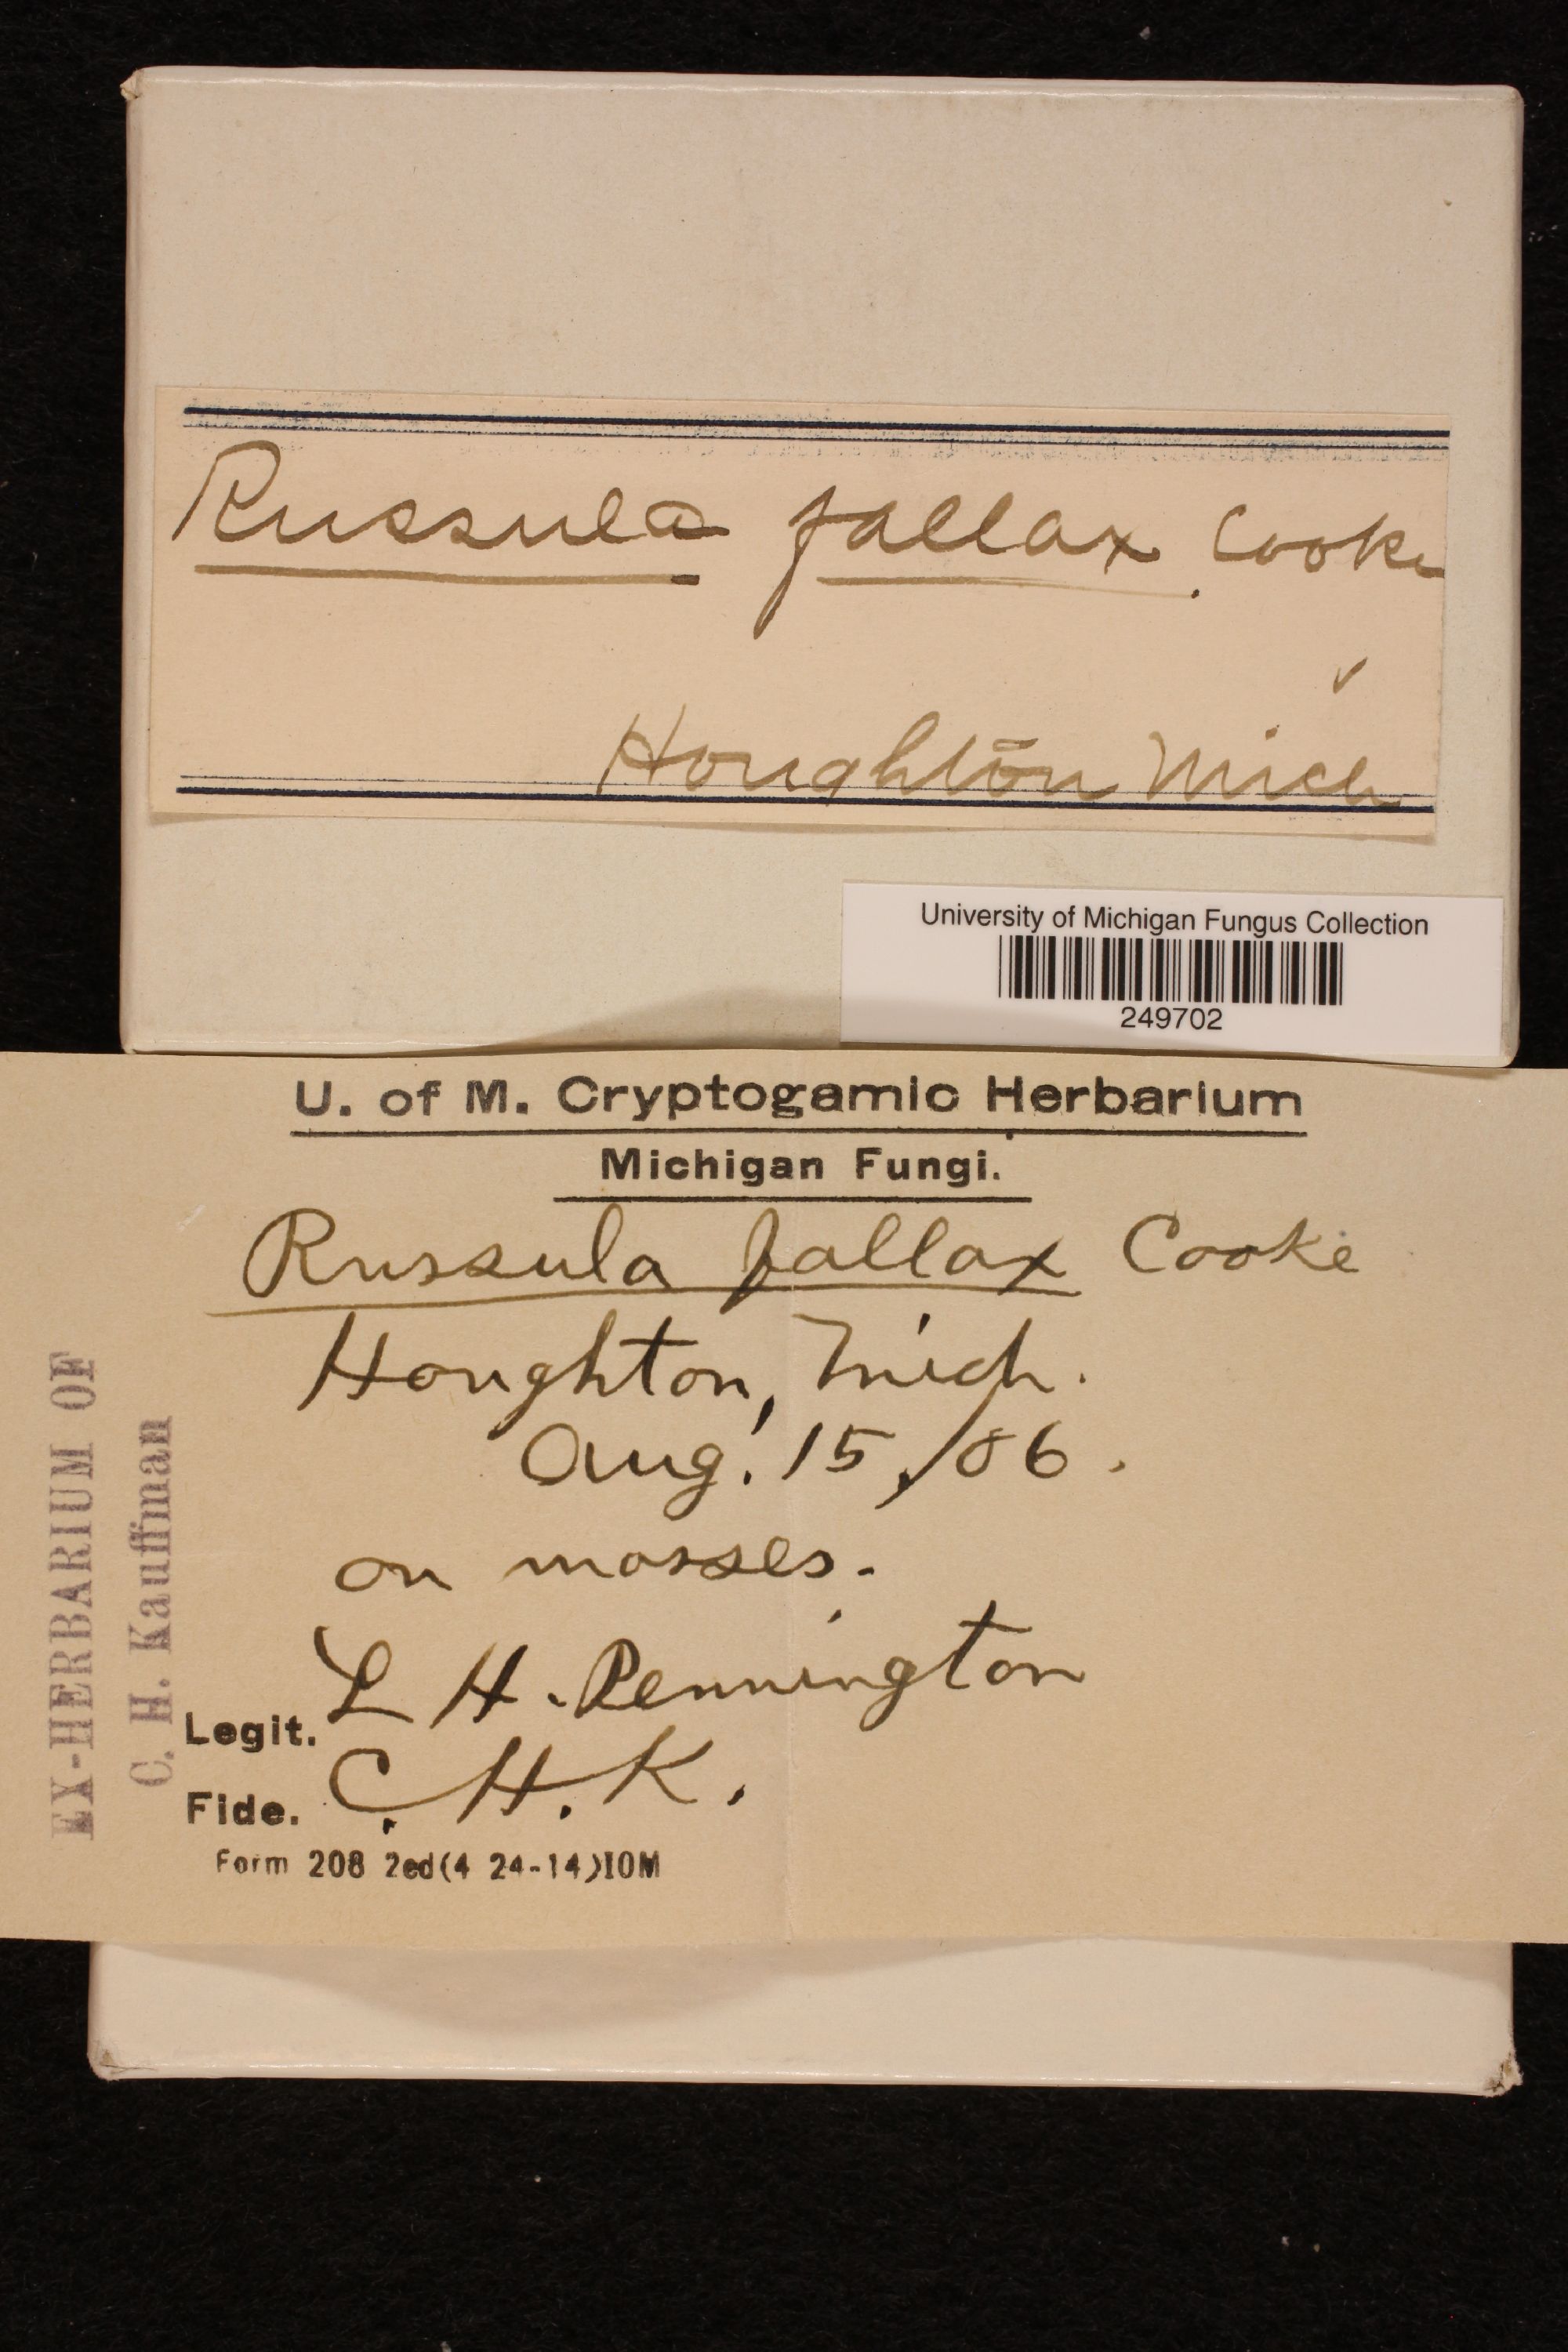 Russula fallax Cooke
Houghton Mich
University of Michigan Fungus Collection
249702
U. of M. Cryptogamic Herbarium
Michigan Fungi.
Russula fallax Cooke
Houghton, Mich.
Aug. 15, /06.
on mosses.
Legit. L H. Pennington
Fide. C. H. K.
Form 208 2ed(4 24-14)10M
EX-HERBARIUM OF
C. H. Kauffman